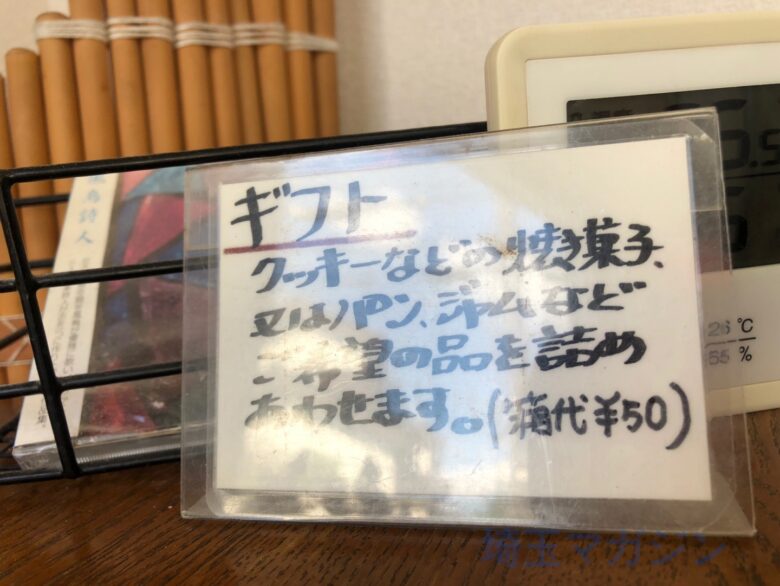 ギフト
クッキーなどの焼き菓子、
又はパン、ジャムなど
ご希望の品を詰め
あわせます。(箱代¥50)
鳥詩人
26 ℃
55 %
埼玉マガジン